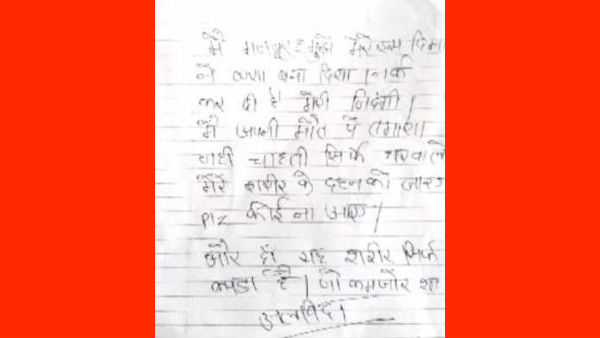 मै मुझे मेरे
ने क्या बना दिया । नर्क
कर दी है मेरी जिंदगी ।
मैं अपनी मौत पे तमाशा
नही चाहती सिर्फ घरवाले
मेरे शरीर के दहन को जाए
plz कोई ना आए ।
और हाँ यह शरीर सिर्फ
कपडा है । जो कमजोर था
अलविदा ।